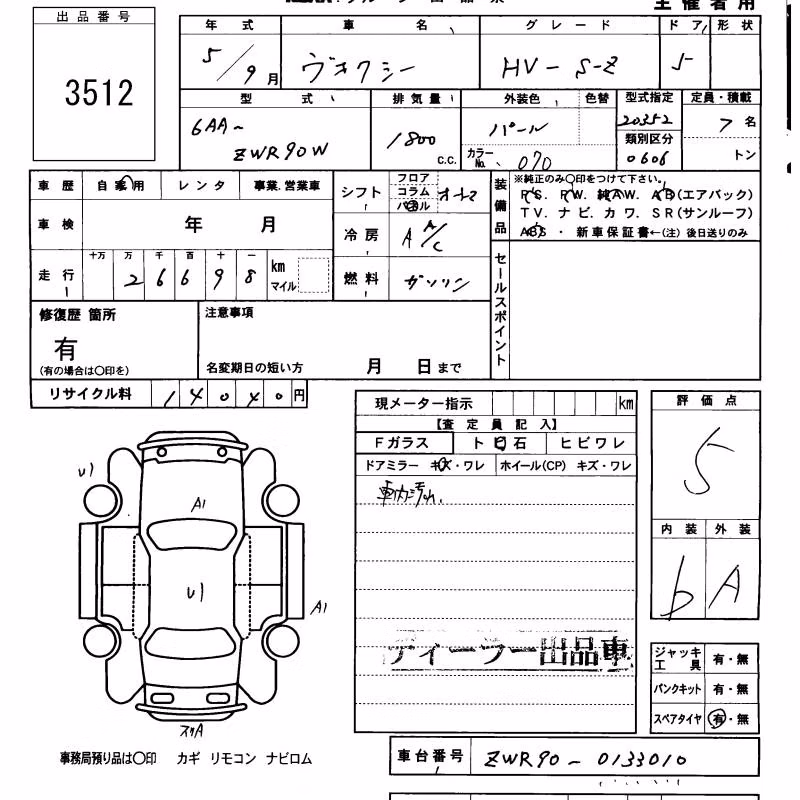 主催者用
出品番号
3512
年式 車名 グレード ドア 形状
5/9月 ヴオクシー HV-S-Z 5
型式 排気量 外装色 色替 型式指定 定員・積載
6AA~ ZWR90W 1800 c.c. パール 20352 7名
カラーNo. 070 類別区分 0606 トン
車歴 自家用 レンタ 事業.営業車
シフト フロア コラム パネル オートマ
装備品 ※純正のみ〇印をつけて下さい。
P.S. P.W. 純AW. A.B(エアバック)
TV. ナビ. カワ. SR(サンルーフ)
ABS ・ 新車保証書←(注) 後日送りのみ
車検 年 月
冷房 A A/C
走行 十万 万 千 百 十 一
2 6 6 9 8 km マイル
燃料 ガソリン
セールスポイント
修復歴 箇所
有
(有の場合は〇印を)
注意事項
名変期日の短い方 月 日まで
リサイクル料 1 4 0 4 0 円
現メーター指示 km
評価点
5
【査定員記入】
Fガラス トビ石 ヒビワレ
ドアミラー キズ・ワレ ホイール(CP) キズ・ワレ
車内汚れ.
内装 外装
b A
U1
A1
U1
A1
スリA
ディーラー出品車
ジャッキ工具 有・無
パンクキット 有・無
スペアタイヤ 有・無
事務局預り品は〇印 カギ リモコン ナビロム
車台番号 ZWR90-0133010